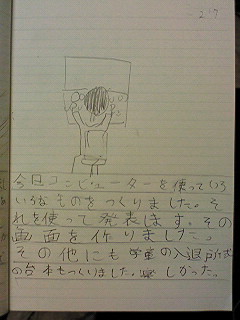 2/7
今日コンピューターを使っていろ
いろなものをつくりました。そ
れを使って発表します。その
画面を作りました。
その他にも学童の入退所式
の台本もつくりました。楽しかった。